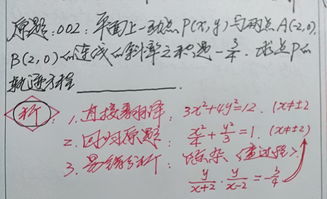 原题:002: 平面上一动点 P(x,y) 与两点 A(-2,0),
B(2,0) 的连线的斜率之积是 -3/4. 求点P的
轨迹方程
析
1. 直接 3x²+4y²=12. (x≠±2)
2. 回归原题: x²/4 + y²/3 = 1. (x≠±2)
3. 易错分析:
y/(x+2) · y/(x-2) = -3/4